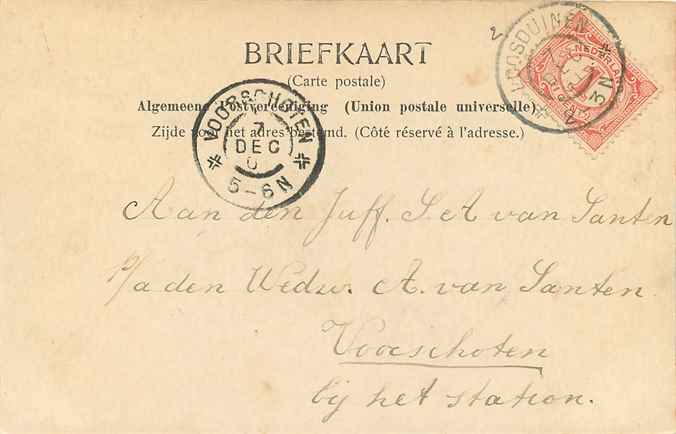 2
BRIEFKAART
(Carte postale)
Algemeene Postvereeniging (Union postale universelle)
Zijde voor het adres bestemd. (Côté réservé à l'adresse.)
LOOSDUINEN
NEDERLAND
VOORSCHOTEN
7
DEC
5-6N
Aan den Juff. S. A van Santen
p/a den Wedw. A. van Santen.
Voorschoten
bij het station.